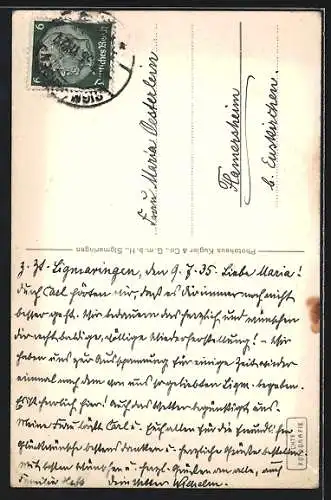 6
Deutsches Reich
6
SIGM
Frau Maria Oesterlein
Flamersheim
b. Euskirchen.
Photohaus Kugler & Co., G. m. b. H., Sigmaringen
z. Zt. Sigmaringen, den 9.7.35. Liebe Maria!
Durch Carl hörten wir, daß es Dir immer noch nicht
besser geht. Wir bedauern das herzlich und wünschen
Dir recht baldige, völlige Wiederherstellung! – Wir
haben uns zur Ausspannung für einige Zeit wieder
einmal nach dem von uns so geliebten Sigm. begeben.
Es ist herrlich hier! Auch das Wetter begünstigt uns.
Meine Frau läßt Carl u. Euch allen für die freundlichen
Glückwünsche bestens danken u. herzliche Grüße bestellen.
Mit besten Wünschen u. herzl. Grüßen an alle, auch
Familie Wilhelm.
ECHTE
FOTOGRAFIE